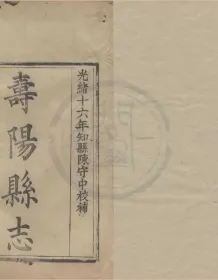 光緒十六年知縣陳守中校補
壽陽縣志